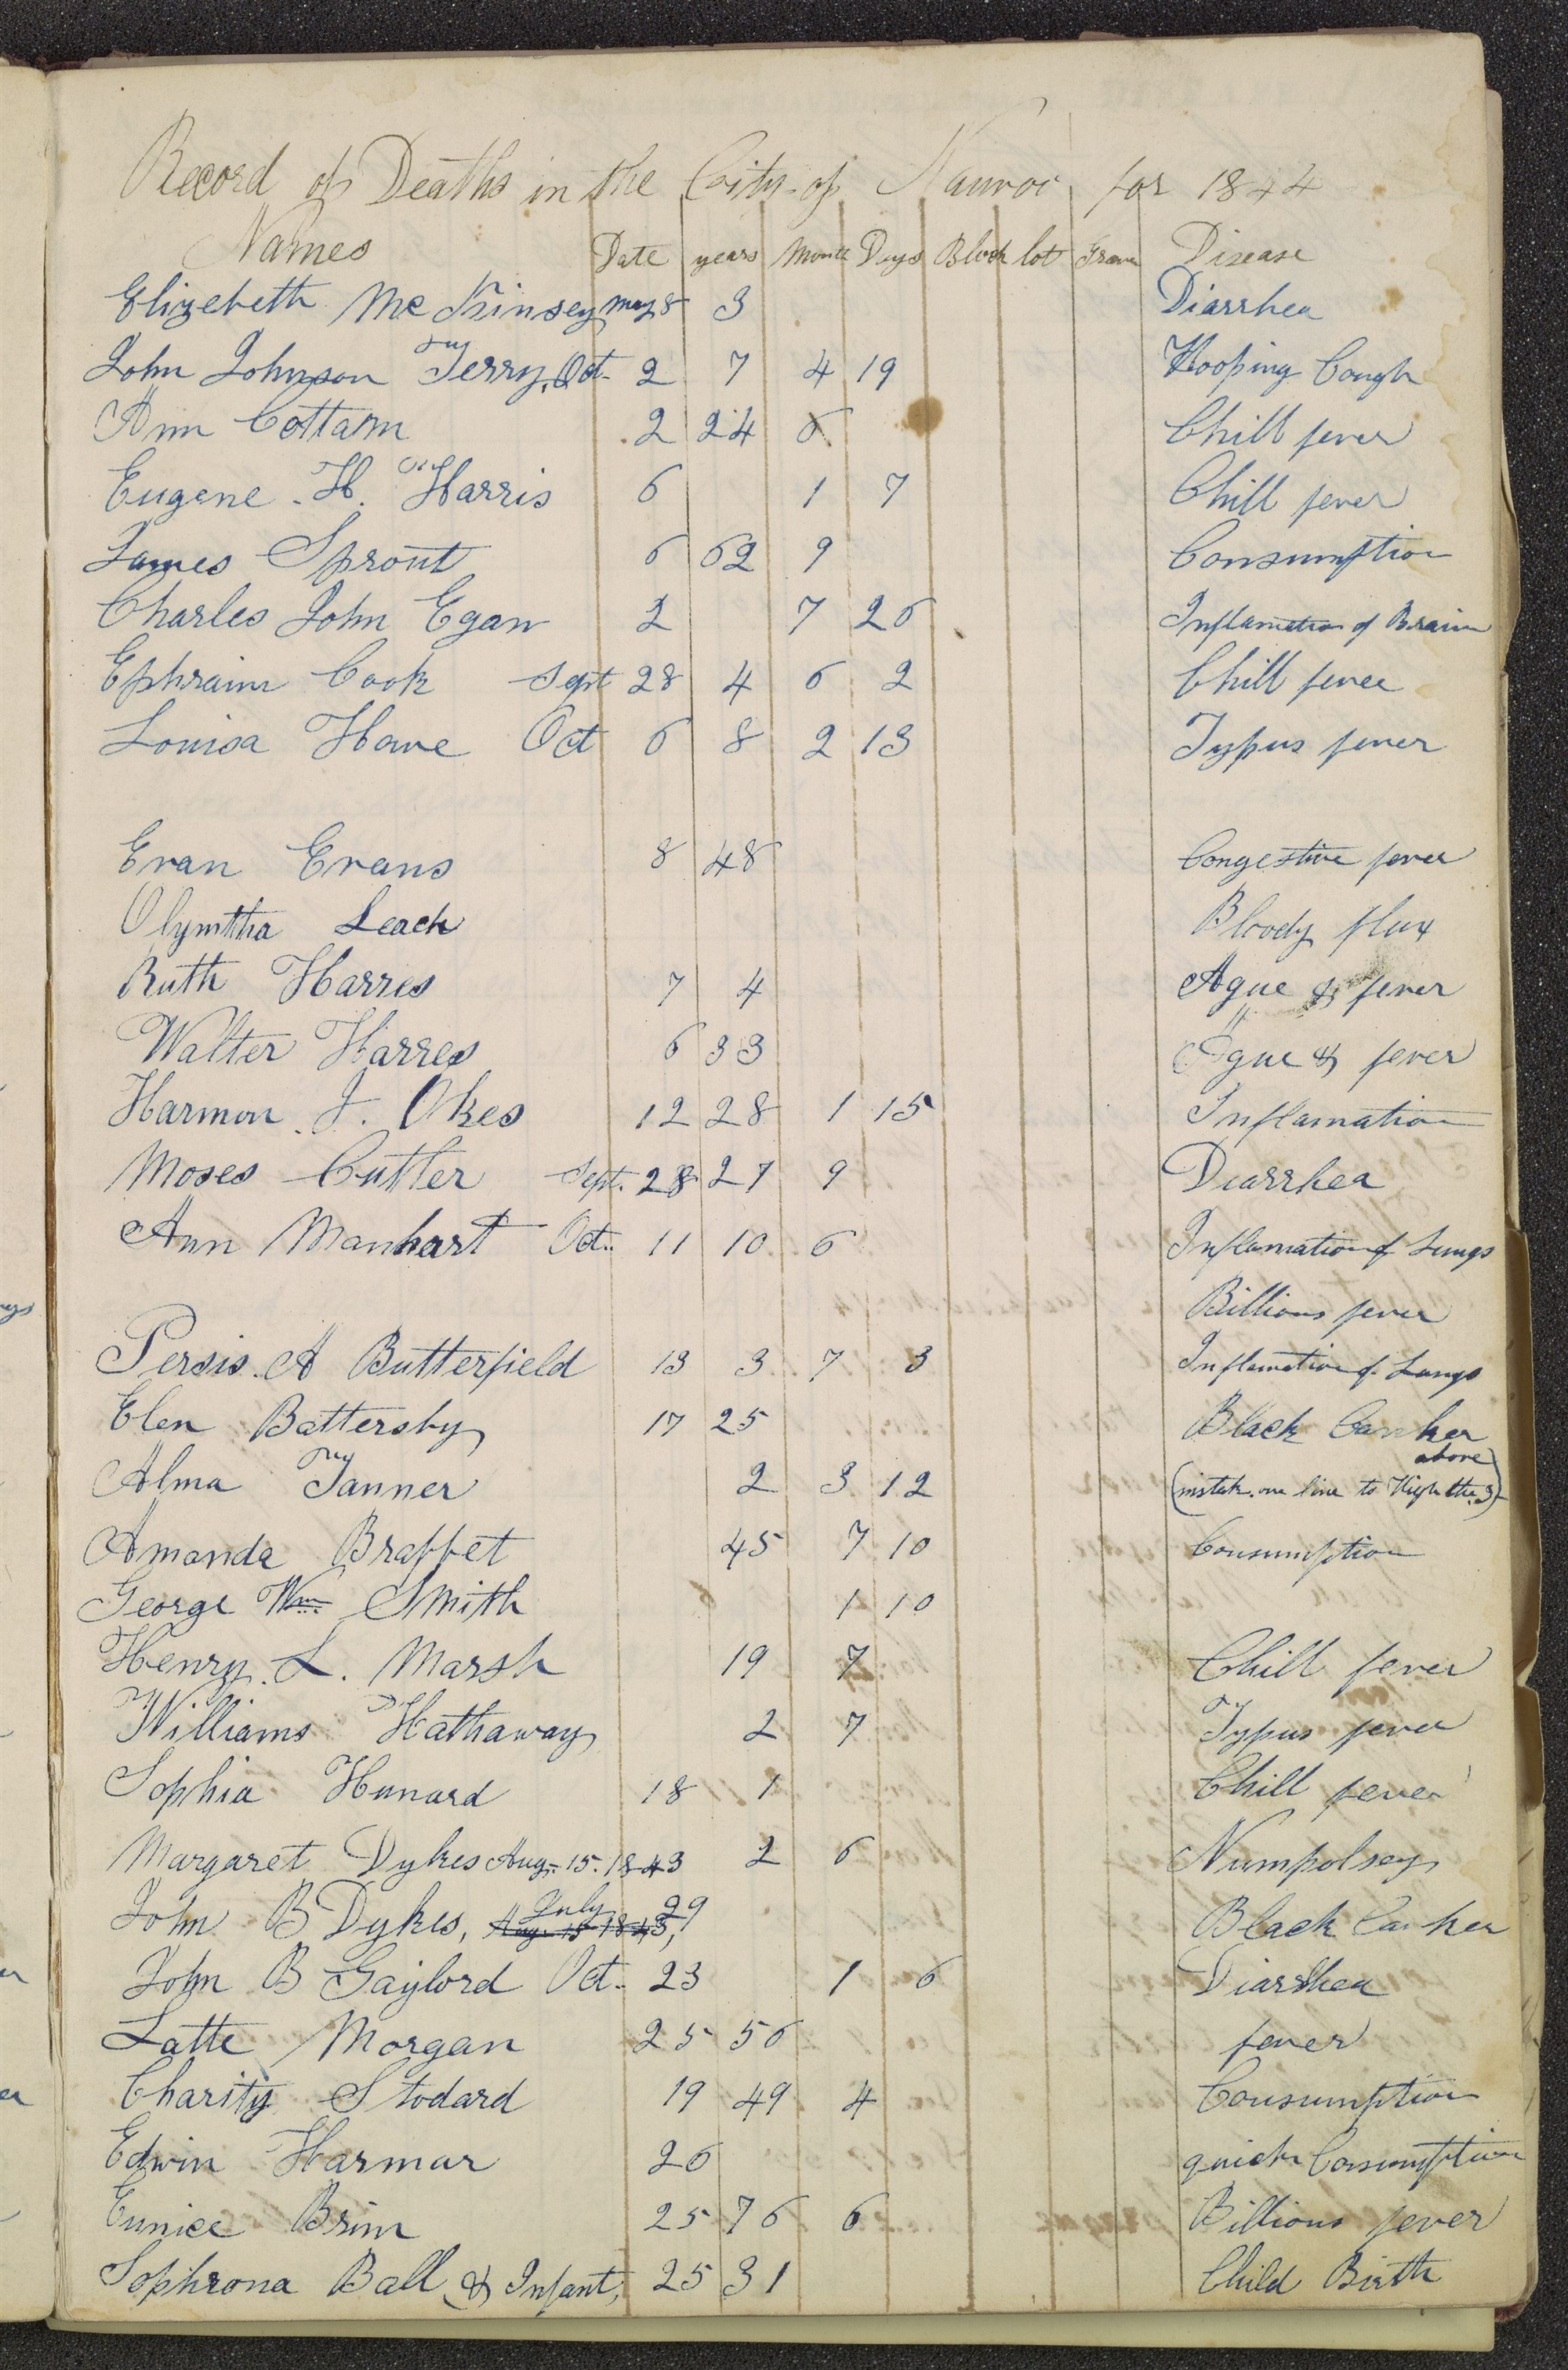 Record of Deaths in the City of Nauvoo for 1844
Names Date years Month Days Block lot Grave Disease
Elizebeth McKinsey may 8 3 Diarrhea
John Johnson Terry, Oct. 2 7 4 19 Hooping Cough
Ann Cottam 2 24 6 Chill fever
Eugene. H. Harris 6 1 7 Chill fever
James Sprout 6 62 9 Consumption
Charles John Egan 2 7 26 Inflamation of Brain
Ephraim Cook Sept 28 4 6 2 Chill fever
Louisa Howe Oct 6 8 2 13 Typus fever
Evan Evans 8 48 Congestive fever
Olymtha Leach Bloody flux
Ruth Harres 7 4 Ague & fever
Walter Harres 6 33 Ague & fever
Harmon J. Okes 12 28 1 15 Inflamation
Moses Cutler Sept. 28 27 9 Diarrhea
Ann Manhart Oct. 11 10 6 Inflamation of Lungs
Billious fever
Persis. A Butterfield 13 3 7 3 Inflamation of Lungs
Elen Battersby 17 25 Black Canker
above
Alma Tanner 2 3 12 (mistak. one line to High the 3)
Amanda Braffet 45 7 10 Consumption
George Wm Smith 1 10
Henry. L. Marsh 19 7 Chill fever
Williams Hathaway 2 7 Typus fever
Sophia Hunard 18 1 Chill fever
Margaret Dykes Aug. 15. 1843 2 6 Numpolsey
July 29
John B Dykes, Aug 15 1843, Black Canker
John B Gaylord Oct. 23 1 6 Diarrhea
Latte Morgan 25 56 fever
Charity Stodard 19 49 4 Consumption
Edwin Harmar 26 quick Consumption
Eunice Brim 25 76 6 Billious fever
Sophrona Ball & Infant, 25 31 Child Birth